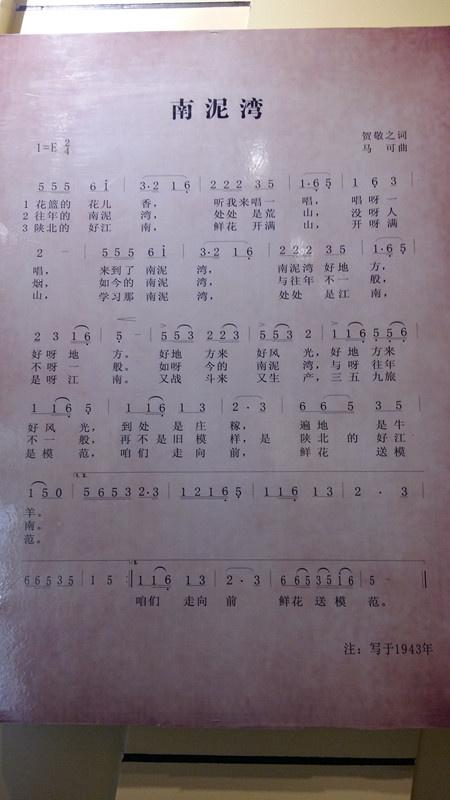 南泥湾
贺敬之词
1=E 2/4
马可曲
5 5 5 6 i | 3·2 1 6 | 2 2 2 3 5 | 1·6 5 | 1 6 3
1 花篮的 花儿 香， 听我来唱一 唱， 唱呀一
2 往年的 南泥 湾， 处处 是荒 山， 没呀人
3 陕北的 好江 南， 鲜花 开满 山， 开呀满
2 - | 5 5 5 6 i | 3·2 1 6 | 2 2 2 3 5 | 1·6 5
唱， 来到了 南泥 湾， 南泥湾 好地 方，
烟， 如今的 南泥 湾， 与往年 不一 般，
山， 学习那 南泥 湾， 处处 是江 南，
2 3 1 6 | 5 - | 5 5 3 2 2 3 | 5 5 3 2 | 1 1 6 5 5 6
好呀 地 方。 好地 方来 好风 光，好地 方来
不呀 一 般。 如呀 今的 南泥 湾，与呀 往年
是呀 江 南。 又战 斗来 又生 产，三五 九旅
1 1 6 5 | 1 1 1 1 3 | 2·3 | 6 6 5 | 3 5
好风 光， 到处 是庄 稼， 遍地 是牛
不一 般， 再不是旧模 样，是 陕北 的 好江
是模 范， 咱们 走向 前， 鲜花 送模
1.2.
1 5 0 | 5 6 5 3 2·3 | 1 2 1 6 5 | 1 1 6 1 3 | 2 · 3
羊。
南。
范。
6 6 5 3 5 | 1 5 :‖ 1 1 6 1 3 | 2·3 | 6 6 5 3 5 i 6 | 5 - ‖
咱们 走向 前 鲜花 送 模 范。
注：写于1943年